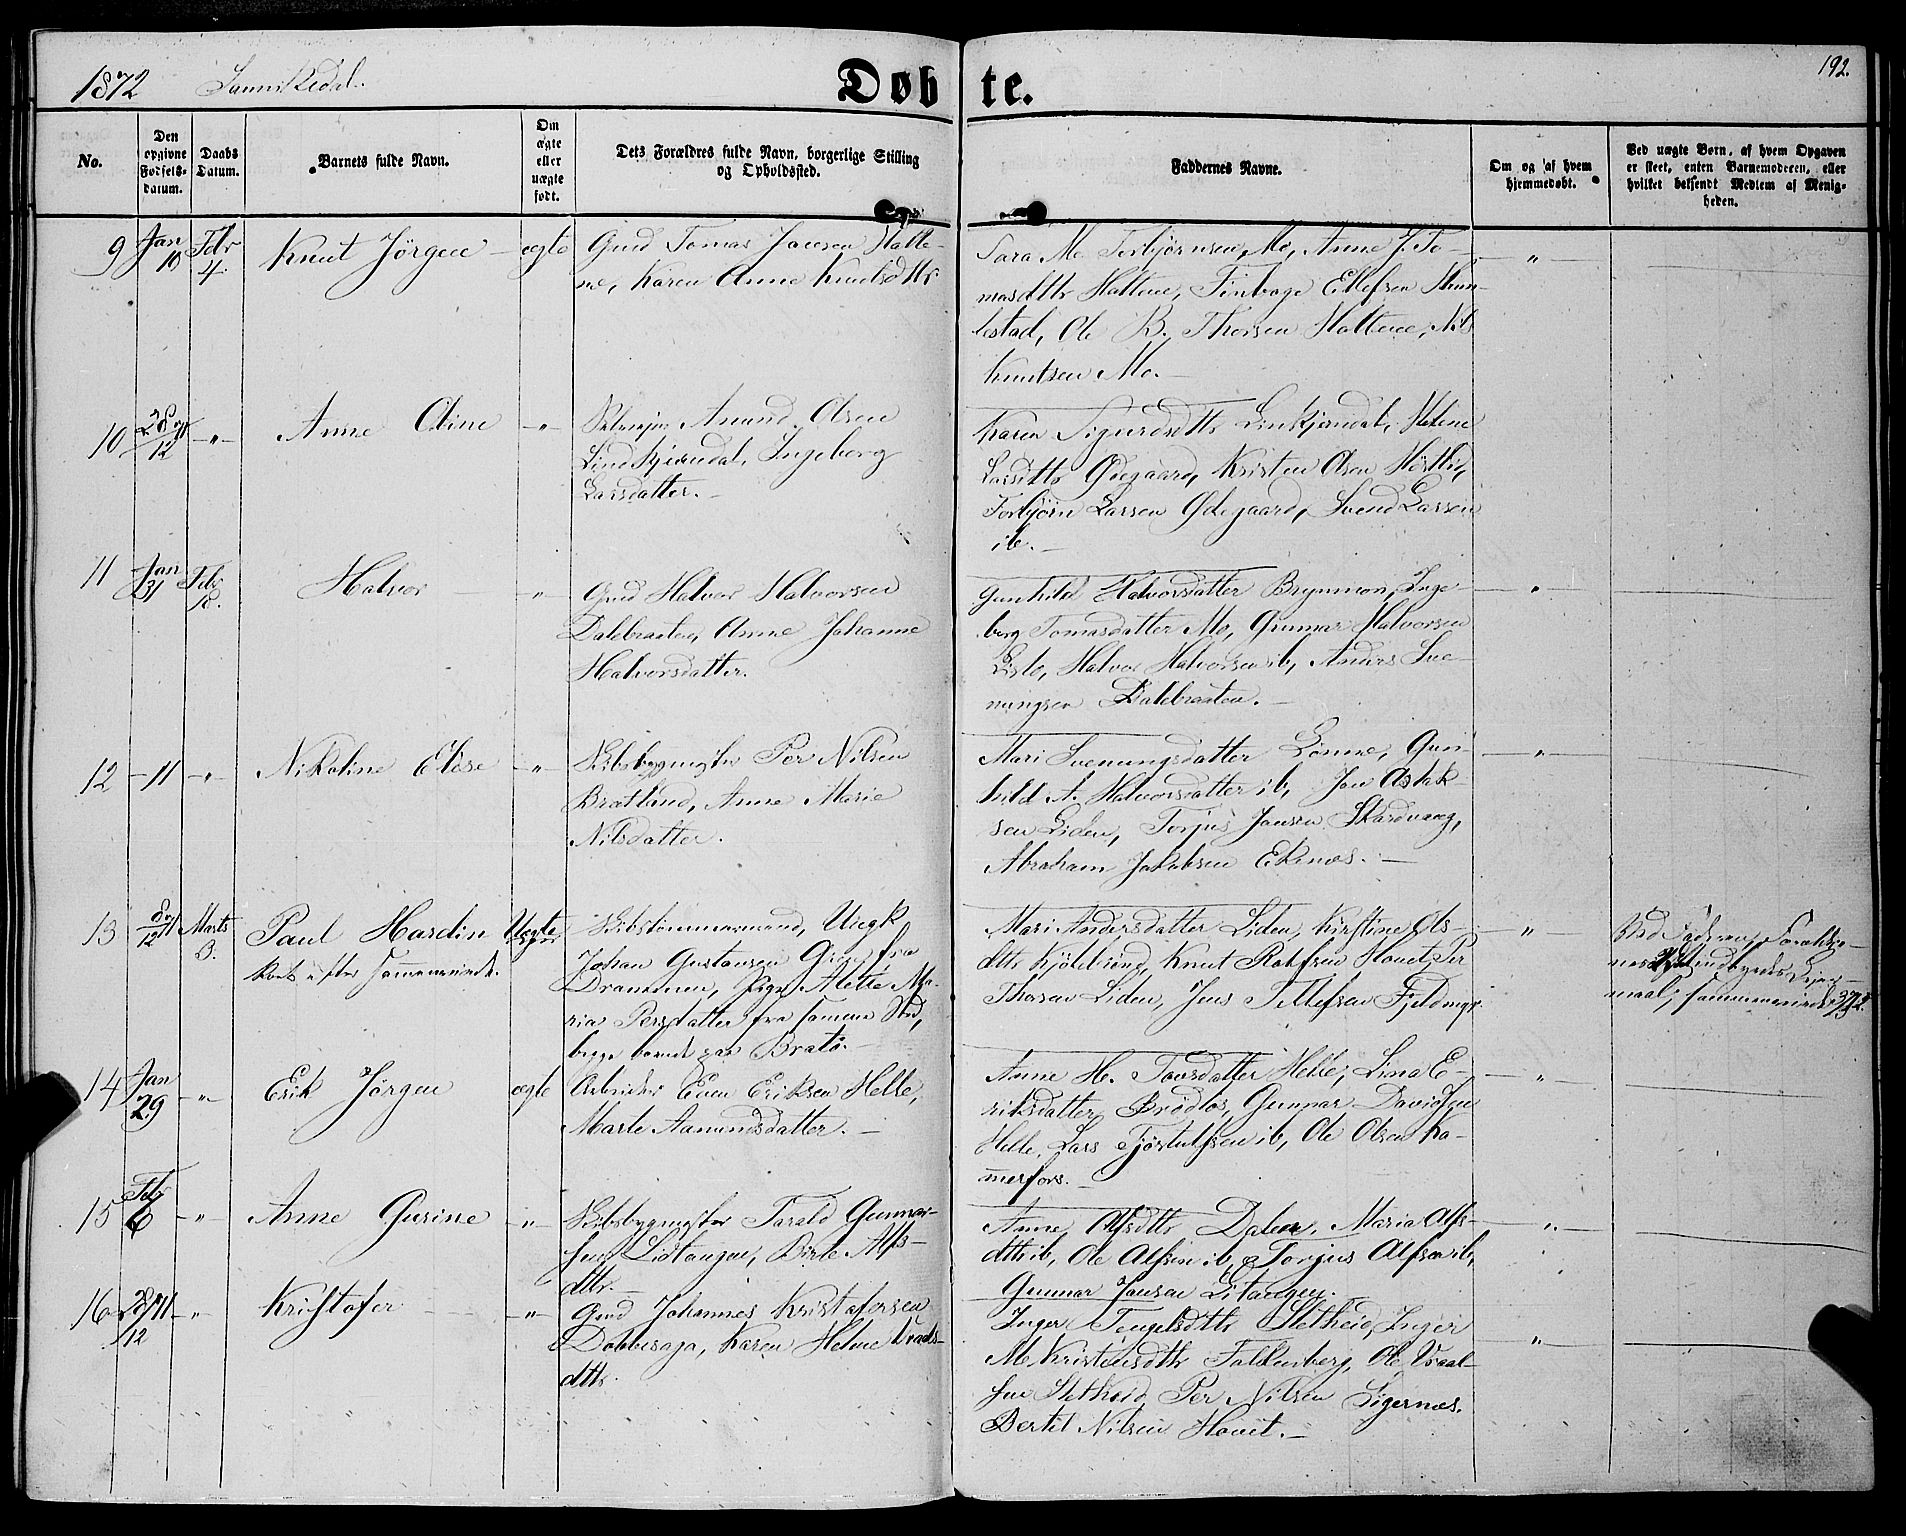 1872 Sannikedal.
Døbte.
192.
No.
Den opgivne Fødselsdatum.
Daabs Datum.
Barnets fulde Navn.
Om ægte eller uægte født.
Dets Forældres fulde Navn, borgerlige Stilling og Opholdssted.
Faddernes Navne.
Om og af hvem hjemmedøbt.
Ved uægte Børn, af hvem Opgaven er skeet, enten Barnemoderen, eller hvilket bekjendt Medlem af Menigheden.
9 Jan 10 Febr 4. Knut Jörgen ægte
Gmd Tomas Jansen Halte-
ne, Karen Anne Knutsdttr
Sara M. Torbjörnsen, Mo, Anne J. To-
masdttr Haltene, Tinboge Ellefsen
stad, Ole B. Thorsen Haltene, Nils
Knutsen Mo. —
10 28/12 71 - " - Anne Oline - " -
Anund Olsen
Lindkjenndal, Ingeborg
Larsdatter. —
Karen Sigurdsdttr Linkjenndal, Helene
Larsdttr Ødegaard, Kristen Olsen
Torbjörn Larsen Ødegaard, Svend Larsen
ib. —
11 Jan 31 Febr 18. Halvor - " -
Gmd Halvor Halvorsen
Dalebraaten, Anne Johanne
Halvorsdatter.
Gunhild Halvorsdatter Brynmon, Inge-
borg Tomasdatter Mo, Gunnar Halvorsen
Lislo, Halvor Halvorsen ib, Anders Sve-
ningsen Dalebraaten. —
12 - 11 - " - Nikoline Elise - " -
Skibsbygmester Per Nilsen
Bratland, Anne Marie
Nilsdatter.
Mari Sveningsdatter Lönne, Gun-
hild A. Halvorsdatter ib, Jon Aslak-
sen Liden, Torjus Jansen Skardvaag,
Abraham Jakobsen Ekenæs. —
13 8/12 71 Marts 3. Paul Hardin Uægte
Skibstømmermand, Ungk
Johan Gustavsen fra
Drammen, Pige Alette Ma-
ria Persdatter fra samme Sted,
begge boende paa Bratö. —
Mari Andersdatter Liden, Kirstine Ols-
dttr Kjölebrönd, Knut Rolfsen Hovet, Per
Thorsen Liden, Jens Tellefsen Fjeldmyr.
14 Jan 29 - " - Erik Jörgen ægte
Arbeider Even Eriksen Helle,
Marte Aanundsdatter. —
Anne H. Tovsdatter Helle, Lina E-
riksdatter Brødlös, Gunnar Davidsen
Helle, Lars Tjöstulfsen ib, Ole Olsen Ka-
merfors. —
15 Febr 6 - " - Anne Gurine - " -
Skibsbygmester Tarald Gunnar-
sen Lidtangen, Birte Alfs-
dttr. —
Anne Alfsdttr Dalen, Maria Alfs-
dttr ib, Ole Alfsen ib, Torjus Alfsen ib,
Gunnar Jansen Litangen.
16 28/12 71 - " - Kristofer - " -
Gmd Johannes Kristofersen
Dobbesaga, Karen Helene Vraals-
dttr.
Inger Tengelsdttr Sletheid, Inger
M. Kristensdttr Falkenberg, Ole Vraal-
sen Sletheid, Per Nilsen Ligernæs.
Bertel Nilsen Hovet. —